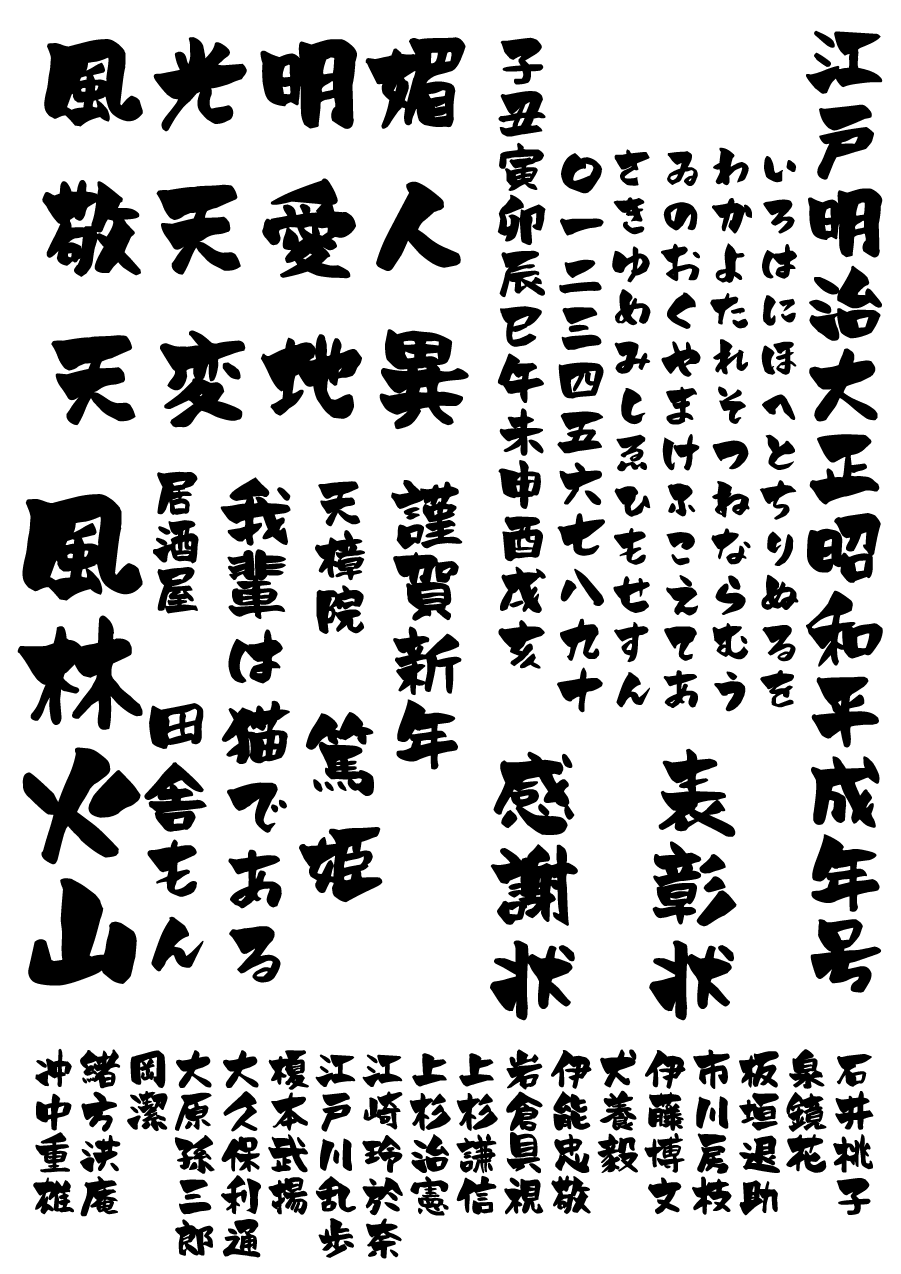 江戸明治大正昭和平成年号
いろはにほへとちりぬるを
わかよたれそつねならむう
ゐのおくやまけふこえてあ
さきゆめみしゑひもせすん
〇一二三四五六七八九十
子丑寅卯辰巳午未申酉戌亥
表彰状
感謝状
風光明媚
敬天愛人
天変地異
謹賀新年
天樟院 篤姫
我輩は猫である
居酒屋 田舎もん
風林火山
石井桃子
泉鏡花
板垣退助
市川房枝
伊藤博文
犬養毅
伊能忠敬
岩倉具視
上杉謙信
上杉治憲
江崎玲於奈
江戸川乱歩
榎本武揚
大久保利通
大原孫三郎
岡潔
緒方洪庵
冲中重雄